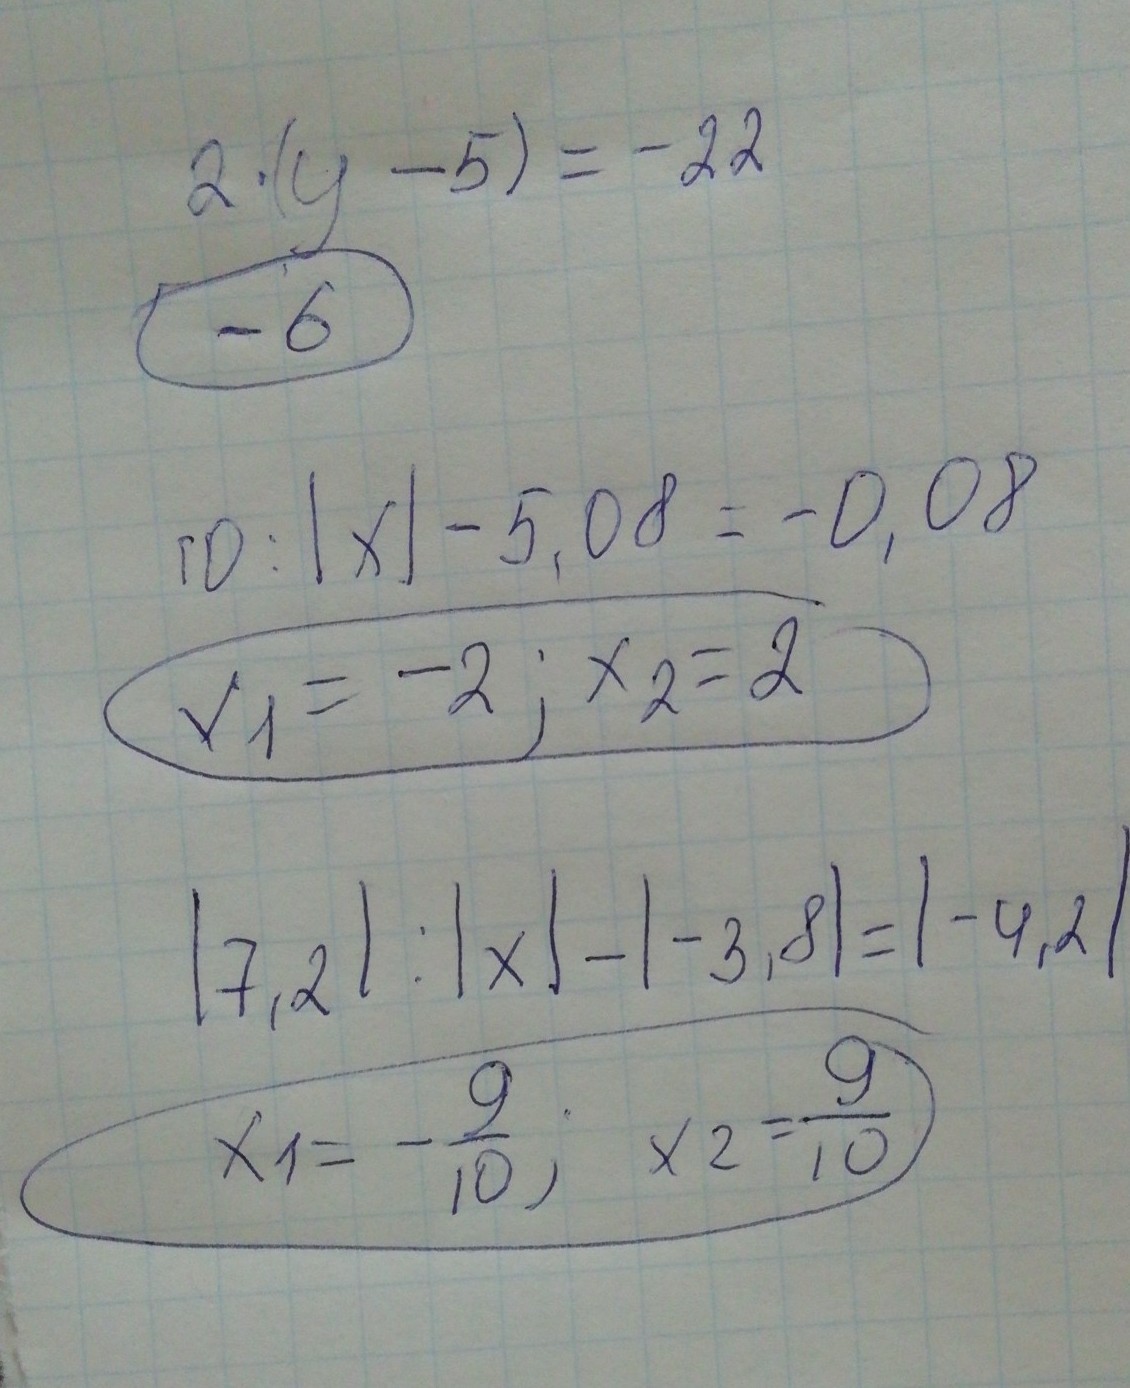 2·(y - 5) = -22
-6
10 : |x| - 5,08 = -0,08
x1 = -2 ; x2 = 2
|7,2| : |x| - |-3,8| = |-4,2|
x1 = - 9/10 ; x2 = 9/10